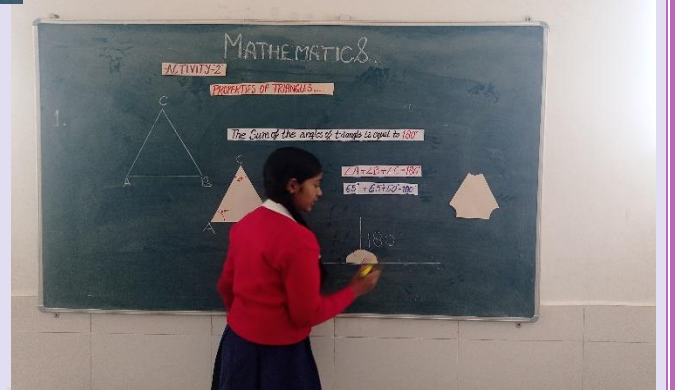 MATHEMATICS..
ACTIVITY-2
PROPERTIES OF TRIANGLES...
1.
C
A
B
The Sum of the angles of triangle is equal to 180°
C
A
180